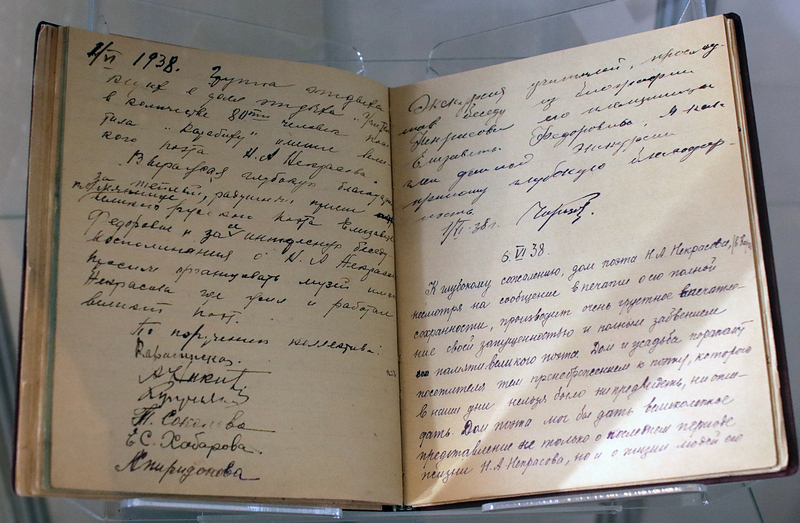 2/VI 1938. Группа отдыха
ющих в доме отдыха
в количестве 80ти человек
тила "Карабиху" имение вели
кого поэта Н.А. Некрасова.
Выражая глубокую благодар
за
великого русского поэта Елизавете
Федоровне и за её интересную беседу,
воспоминания о Н.А. Некрасове
просим организовать музей имени
Некрасова где жил и работал
великий поэт.
По поручению коллектива:
Т. Соколова
Е.С. Хабарова.
Спиридонова
Экскурсия учителей, прослу-
шав беседу из биографии
Некрасова его племянницы
Елизаветы Федоровны,
экскурсии
приношу глубокую благодар-
ность.
1/VI-38г.
6.VI 38.
К глубокому сожалению, дом поэта Н.А. Некрасова,
несмотря на сообщение в печати о его полной
сохранности, производит очень грустное впечатле-
ние своей запущенностью и полным забвением
памяти великого поэта. Дом и усадьба поражают
посетителя тем пренебрежением к поэту, которого
в наши дни нельзя было ни предвидеть, ни ожи-
дать. Дом поэта мог бы дать великолепное
представление не только о последнем периоде
жизни Н.А. Некрасова, но и о жизни людей его